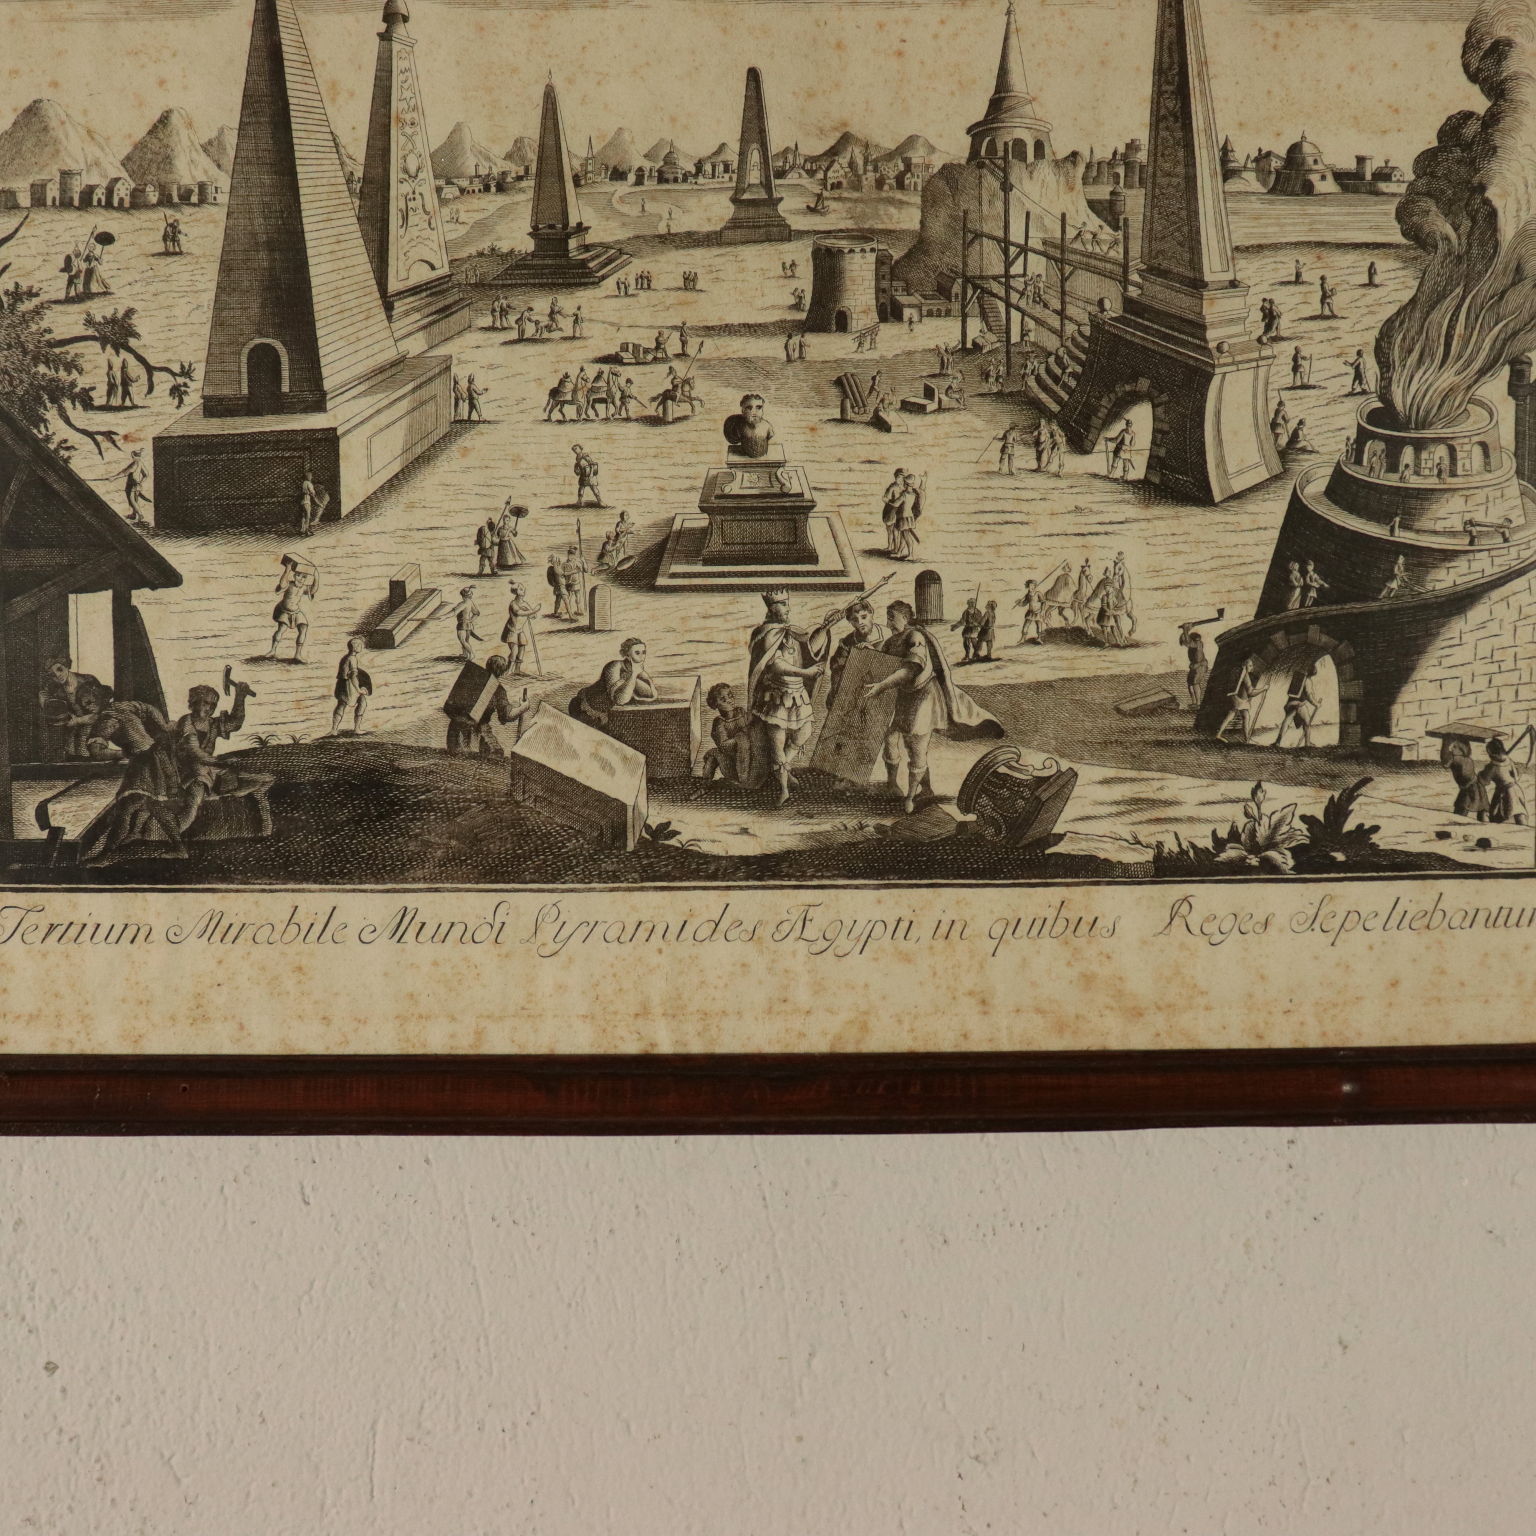 Tertium Mirabile Mundi Pyramides Ægypti, in quibus Reges Sepeliebantur